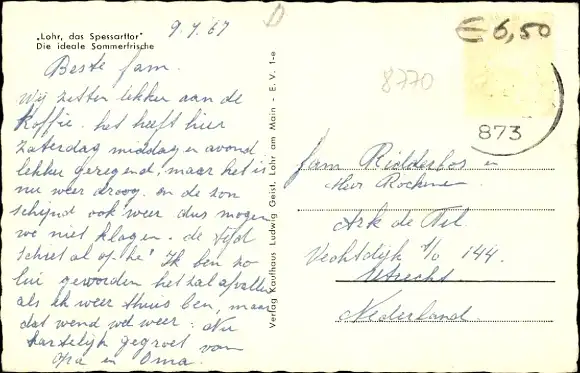 9.7.67
D
€6,50
„Lohr, das Spessarttor"
Die ideale Sommerfrische
8770
873
Beste fam.
Wij zitten lekker aan de
koffie. het heeft hier
zaterdag middag en avond
lekker geregend, maar het is
nu weer droog. en de zon
schijnd ook weer dus mogen
we niet klagen. de tijd
schiet al op he! Ik ben zo
lui geworden het zal afvallen
als ik weer thuis ben, maar
dat wend wel weer. Nu
hartelijk gegroet van
Opa en Oma.
Verlag Kaufhaus Ludwig Geist, Lohr am Main - E. V. 1-e
fam Ridderbos en
Ark de Tel.
Vechtdijk t/o 144.
Utrecht
Nederland.